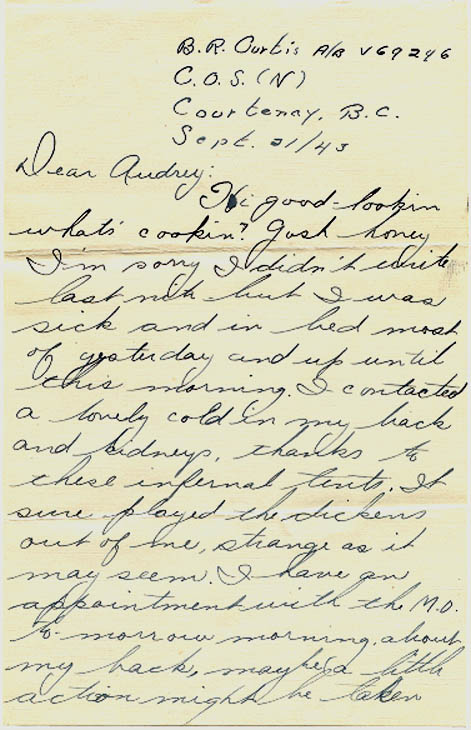 B.R. Curtis A/B V69246
C.O.S. (N)
Courtenay, B.C.
Sept. 21/43
Dear Audrey:
Hi good-lookin
what's cookin? Gosh honey
I'm sorry I didn't write
last nite but I was
sick and in bed most
of yesterday and up until
this morning. I contacted
a lovely cold in my back
and kidneys, thanks to
these infernal tents. It
sure played the dickens
out of me, strange as it
may seem. I have an
appointment with the M.O.
to-morrow morning, about
my back, maybe a little
action might be taken